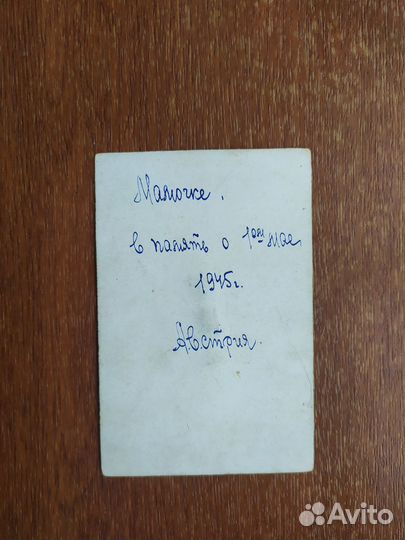 Мамочке.
в память о 1ом мае
1945г.
Австрия.
Avito